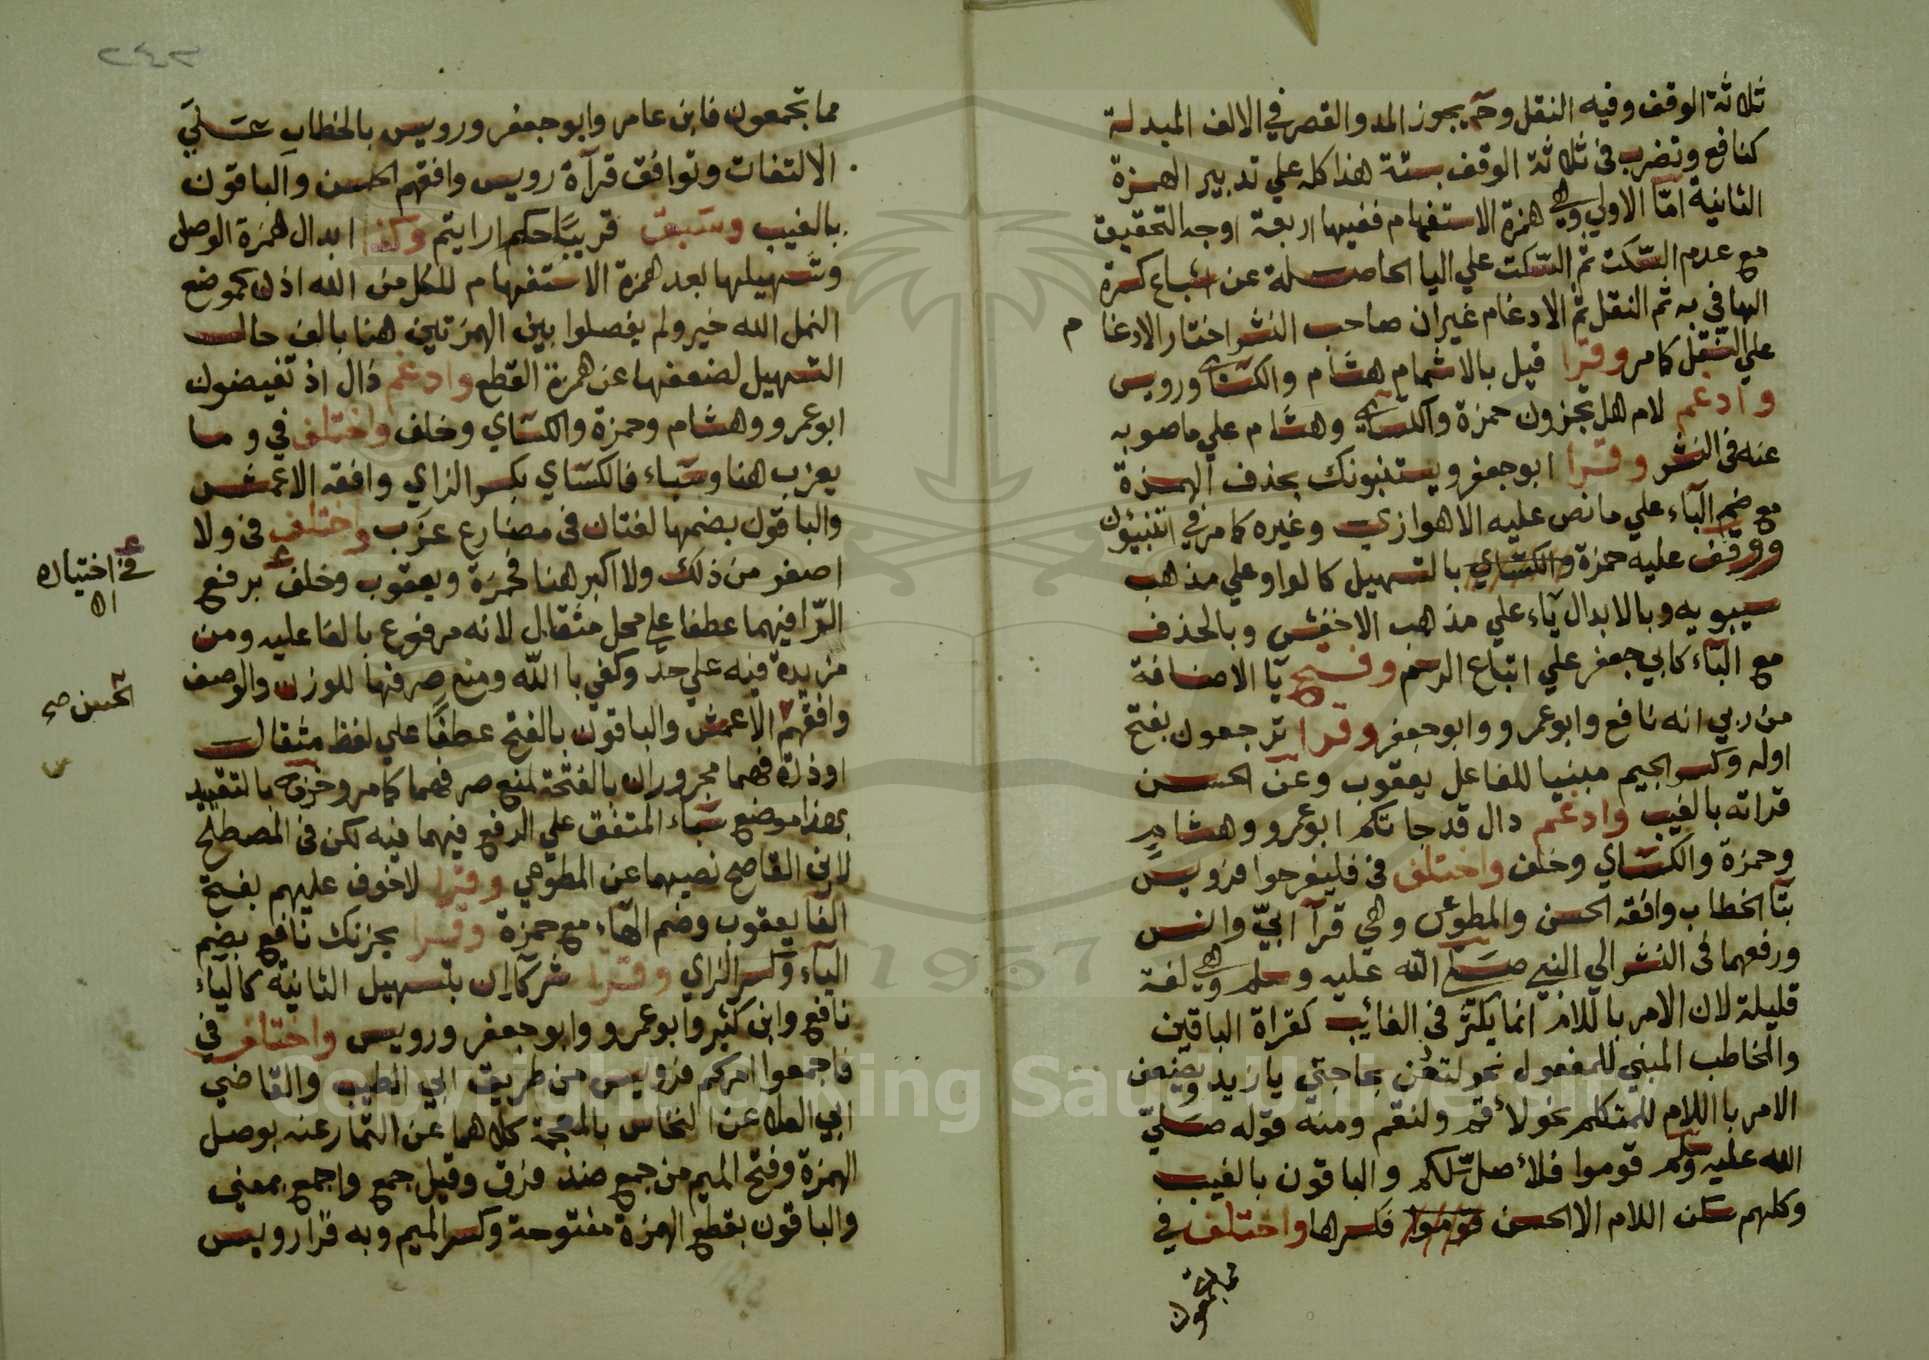 ثلاثة الوقف وفيه النقل وح يجوز المد والقصر في الالف المبدلة
كنافع وتضرب فى ثلاثة الوقف بستة هذا كله علي تدبير الهمزة
الثانية امّا الاولي وهي همزة الاستفهام ففيها اربعة اوجه التحقيق
مع عدم السّكت ثم السّكت علي اليا الحاصلة عن اشباع كسرة
الها في به ثم النقل ثم الادغام غيران صاحب النشر اختار الادغا م
علي النقل كامر وقرا قيل بالاشمام هشام والكسّاي ورويس
وادغم لام هل تجزون حمزة والكسّاي وهشام علي ما صوبه
عنه فى النشر وقرا ابو جعفر ويستنبونك بحذف الهمزة
مع ضم الباء علي ما نص عليه الاهوازي وغيره كامر في اتنبيؤن
ووقف عليه حمزة والكسّاي بالتسهيل كالواو علي مذهب
سيبويه وبالابدال ياء علي مذهب الاخفش وبالحذف
مع الباء كابي جعفر علي اتباع الرسم وفتح يآ الاضافة
من ربي انه نافع وابو عمرو وابو جعفر وقرا ترجعون بفتح
اوله وكسر الجيم مبنيا للفاعل يعقوب وعن الحسن
قراته بالغيب وادغم دال قد جاتكم ابو عمرو وهشام
وحمزة والكسّاي وخلف واختلف فى فليفرحوا فرويس
بتآ الخطاب وافقه الحسن والمطوعى وهي قرآ ابيّ وانس
ورفعهما فى النشر الي النبي صلي الله عليه وسلم وهي لغة
قليلة لان الامر باللام انما يكثر فى الغائب كقراة الباقين
والمخاطب المبني للمفعول نحو لتعن بحاجتي يا زيد ويضعف
الامر با اللام للمتكلم نحو لأقم ولنقم ومنه قوله صليّ
الله عليه وسلم قوموا فلأصل لكم والباقون بالغيب
وكلهم سكن اللام الا الحسن قوموا فكسرها واختلف في
تجمعون
٢٤٢
مما تجمعون فابن عامر وابو جعفر ورويس بالخطاب عَلي
الالتفات وتوافق قرآة رويس وافقهم الحسن والباقون
بالغيب وسبق قريبًا حكم ارايتم وكذا ابدال همزة الوصل
وتسهيلها بعد همزة الاستفهام للكل من الله اذن كموضع
النمل الله خير ولم يفصلوا بين الهمزتين هنا بالف حالت
التسهيل لضعفها عن همزة القطع وادغم ذال اذ تفيضون
ابو عمرو وهشام وحمزة والكسّاي وخلف واختلف في وما
يعزب هنا وسباء فالكسّاي بكسر الزاي وافقه الاعمش
والباقون بضمها لغتان فى مضارع عزَب واختلف فى ولا
اصغر من ذلك ولا اكبر هنا فحمزة ويعقوب وخلف برفع
الرّا فيهما عطفا علي محل مثقال لانه مرفوع بالفاعليه ومن
مزيدة فيه علي حدّ وكفي با اللّه ومنع صرفها للوزن والوصف
وافقهم الاعمش والباقون بالفتح عطفًا علي لفظ مثقال
او ذرة فهما مجروران بالفتحة لمنع صرفهما كامر وخرج بالتقييد
بهذا موضع سباء المتفق علي الرفع فيهما فيه لكن فى المصطلح
لابن القاصح نصبهما عن المطوعي وقرا لا خوف عليهم بفتح
الفا يعقوب وضم الهاء مع حمزة وقرا يحزنك نافع بضم
الياء وكسر الزاي وقرا شركآ ان بتسهيل الثانية كالياء
نافع وابن كثير وابو عمرو وابو جعفر ورويس واختلف في
فاجمعوا امركم فرويس من طريق ابي الطيب والقاضي
ابي العلا عن النخاس بالمعجمة كلاهما عن التمار عنه بوصل
الهمزة وفتح الميم من جمع ضد فرق وقيل جمع واجمع بمعني
والباقون بقطع الهمزة مفتوحة وكسر الميم وبه قرا رويس
في اختياره
الحسن صح
1957
Copyright © King Saud University